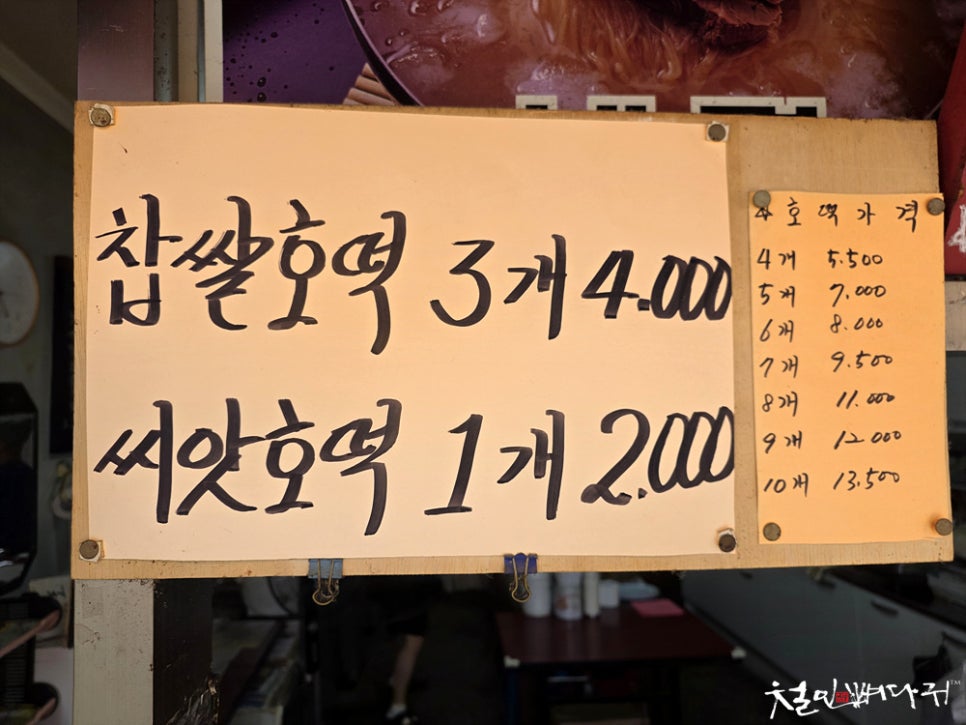 찹쌀호떡 3개 4.000
씨앗호떡 1개 2.000
호떡가격
4개 5.500
5개 7.000
6개 8.000
7개 9.500
8개 11.000
9개 12.000
10개 13.500